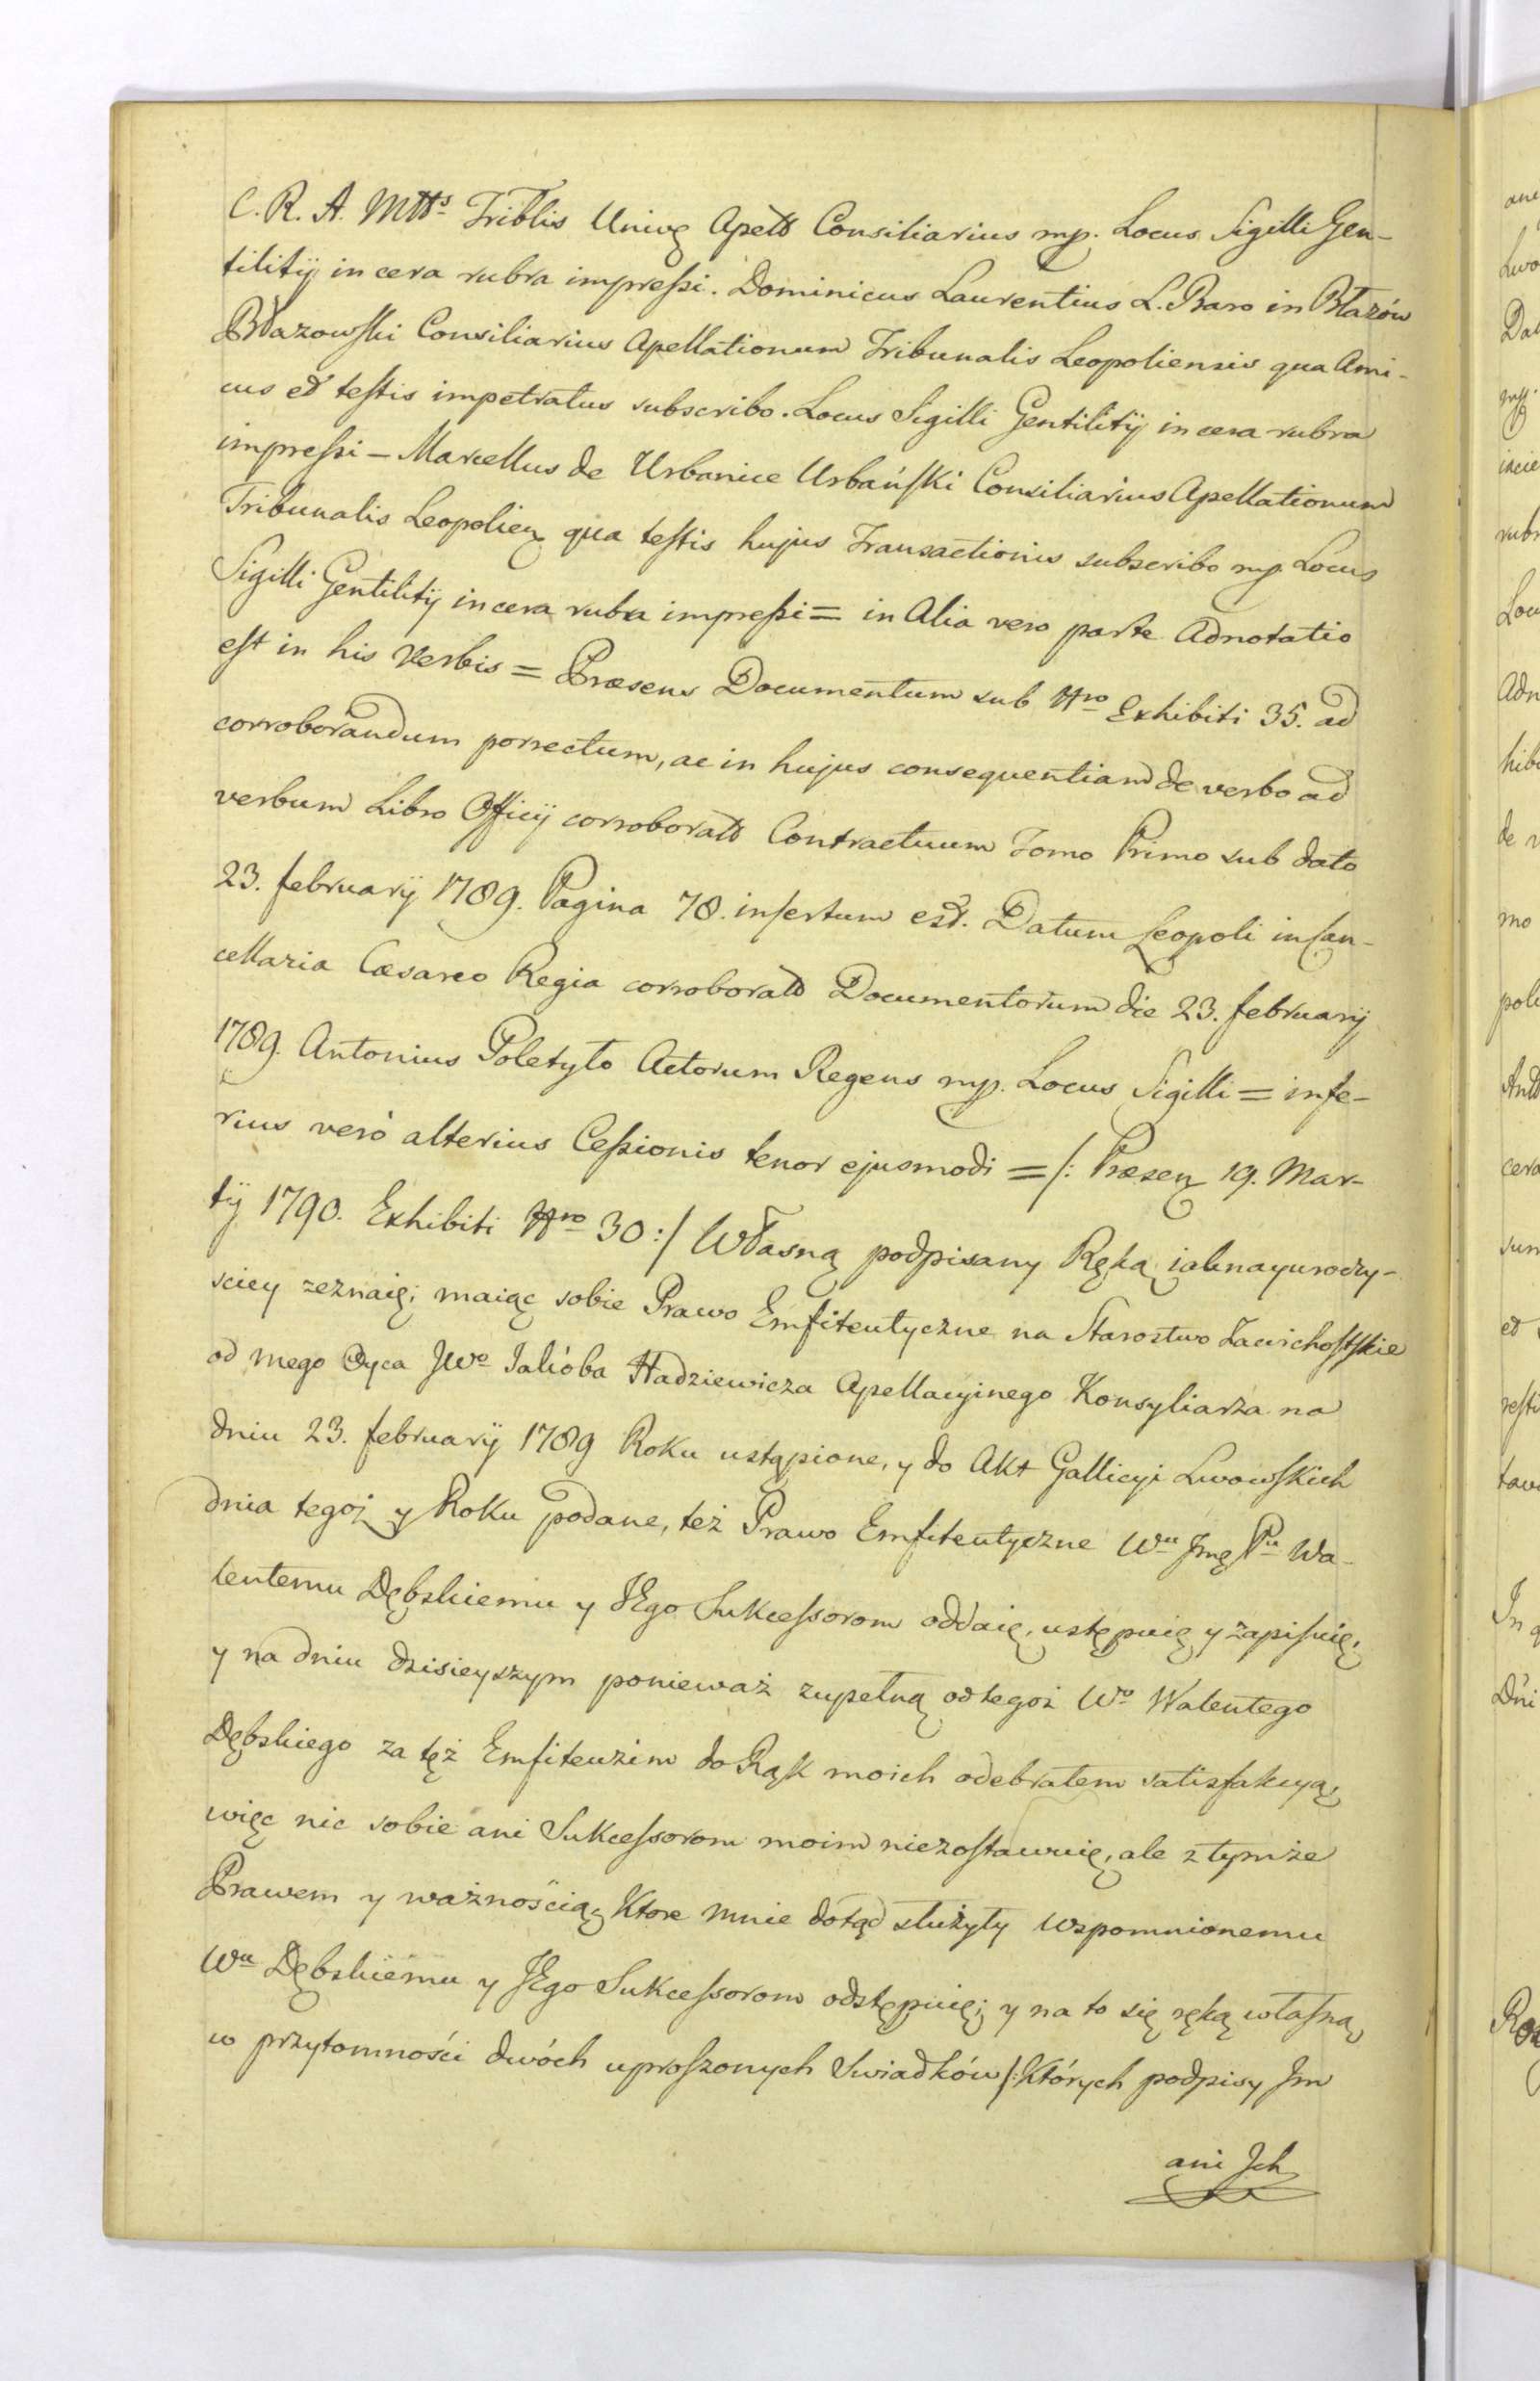 C. R. A. Mtts Triblis Univę Apett Consiliarius mp. Locus Sigilli Gen-
tilitij in cera rubra impressi. Dominicus Laurentius L. Baro in Błazów
Błazowski Consiliarius Apellationum Tribunalis Leopoliensis qua Ami-
cus et testis impetratus subscribo. Locus Sigilli Gentilitij in cera rubra
impressi – Marcellus de Urbanice Urbański Consiliarius Apellationum
Tribunalis Leopolien qua testis hujus Transactionis subscribo mp. Locus
Sigilli Gentilitij in cera rubra impressi = in Alia vero parte Adnotatio
est in his Verbis = Præsens Documentum sub Nro Exhibiti 35. ad
corroborandum porrectum, ac in hujus consequentiam de verbo ad
verbum Libro Officij corroboratt Contractuum Tomo Primo sub dato
23. februarij 1789. Pagina 78. insertum est. Datum Leopoli in Can-
cellaria Cæsareo Regia corroboratt Documentorum die 23. februarij
1789. Antonius Poletyło Actorum Regens mp. Locus Sigilli = infe-
rius verò alterius Cessionis tenor ejusmodi = /: Præsen 19. Mar-
tij 1790. Exhibiti Nro 30 :/ Własną podpisany Ręką iaknayuroczy-
sciey zeznaię; maiąc sobie Prawo Emfiteutyczne na Starostwo Zawichostskie
od mego Oyca JWo Jakóba Hadziewicza Apellacyinego Konsyliarza na
dniu 23. februarij 1789 Roku ustąpione, y do Akt Gallicyi Lwowskich
dnia tegoż y Roku podane, też Prawo Emfiteutyczne Wu Jmę Pu Wa-
lentemu Dębskiemu y JEgo Sukcessorom oddaię, ustępuię y zapisuię,
y na dniu dzisieyszym ponieważ zupełną od tegoż Wo Walentego
Dębskiego za tęż Emfiteuzim do Rąk moich odebrałem satisfakcyą,
więc nic sobie ani Sukcessorom moim niezostawuię, ale z tymże
Prawem y ważnością, Ktore mnie dotąd służyły Wspomnionemu
Wu Dębskiemu y JEgo Sukcessorom odstępuię; y na to się ręką własną,
w przytomności dwóch uproszonych Swiadków /: Których podpisy Jm
ani Jch